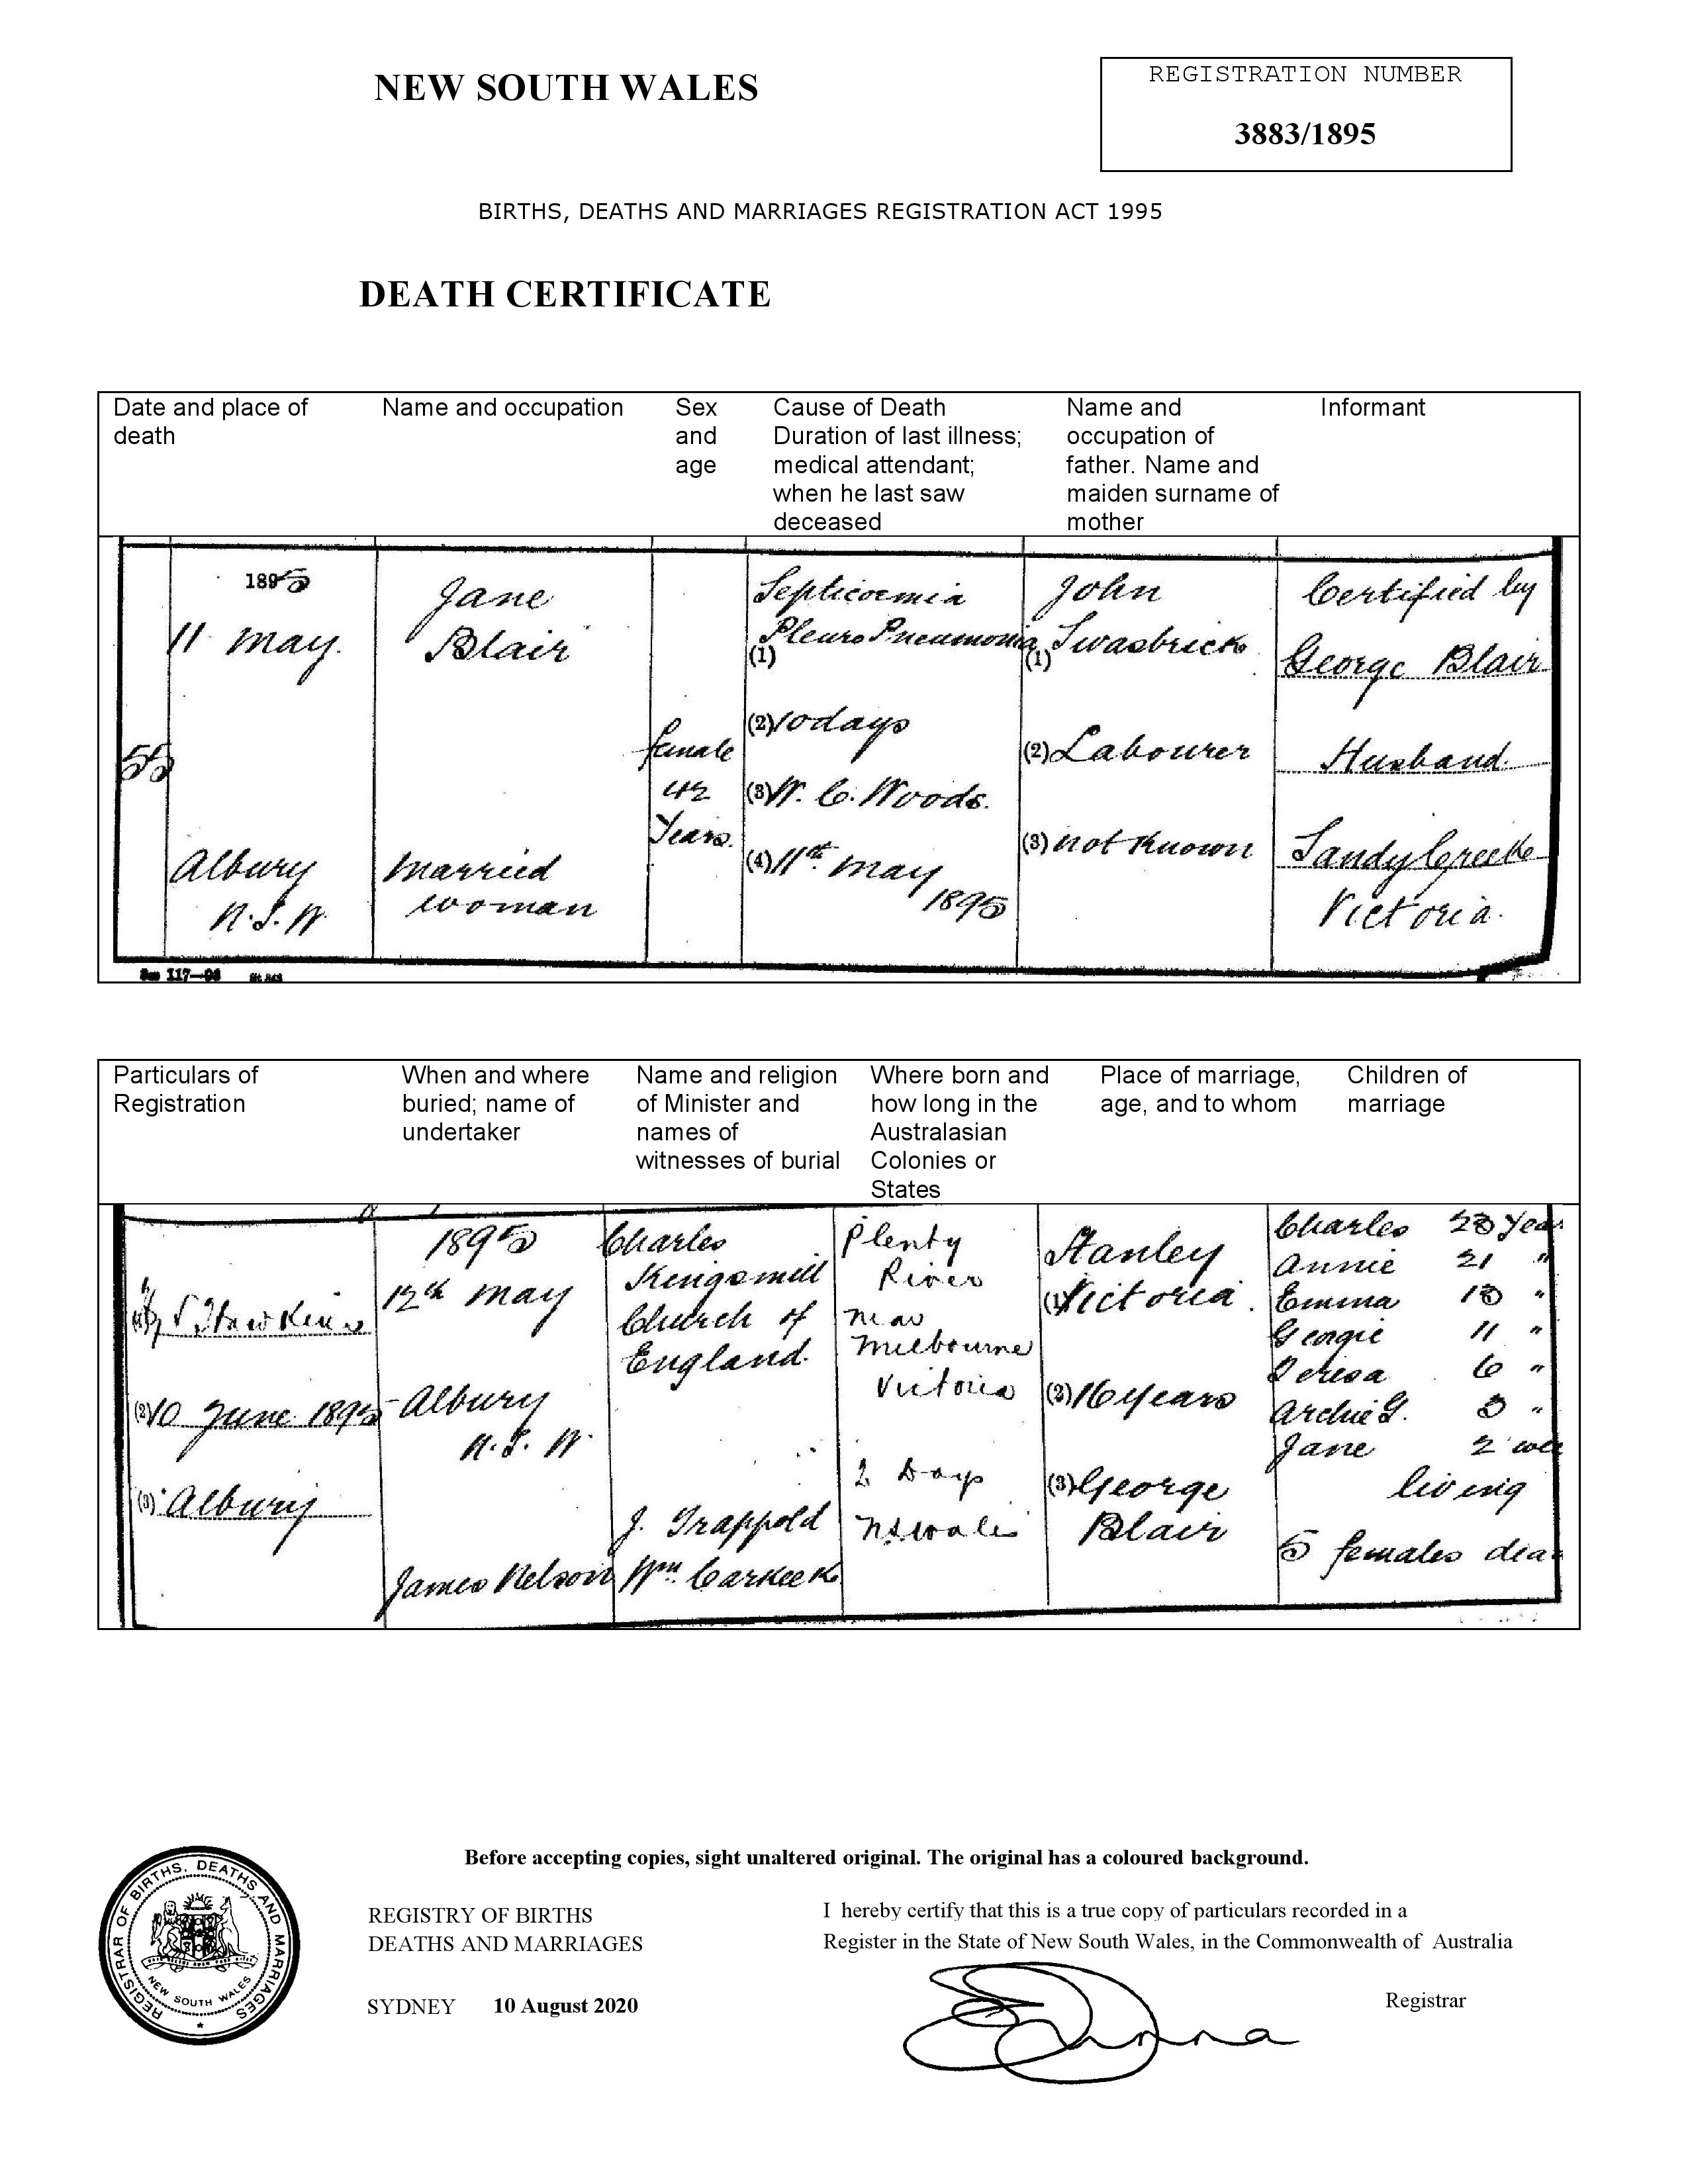 NEW SOUTH WALES
REGISTRATION NUMBER
3883/1895
BIRTHS, DEATHS AND MARRIAGES REGISTRATION ACT 1995
DEATH CERTIFICATE
Date and place of
death
Name and occupation
Sex
and
age
Cause of Death
Duration of last illness;
medical attendant;
when he last saw
deceased
Name and
occupation of
father. Name and
maiden surname of
mother
Informant
55
1895
11 May.
Albury
N.S.W
Jane
Blair
Married
woman
female
42
Years.
Septicoemia
Pleuro Pneumonia
(1)
(2) 10 days
(3) W. C. Woods.
(4) 11th May
1895
John
(1) Swasbrick
(2) Labourer
(3) not Known
Certified by
George Blair
Husband.
Sandy Creek
Victoria.
117—
Particulars of
Registration
When and where
buried; name of
undertaker
Name and religion
of Minister and
names of
witnesses of burial
Where born and
how long in the
Australasian
Colonies or
States
Place of marriage,
age, and to whom
Children of
marriage
Hawkins
(2) 10 June 1895
(3) Albury
1895
12th May
Albury
N.S.W.
James Nelson
Charles
Kingsmill
Church of
England.
J. Trappold
Wm. Carkeek
Plenty
River
near
Melbourne
Victoria
2 Days
N S Wales
Stanley
(1) Victoria.
(2) 16 years
(3) George
Blair
Charles Yea
Annie 21 "
Emma "
Georgie 11 "
Teresa 6 "
Archie G. "
Jane 2 wee
living
5 females dea
Before accepting copies, sight unaltered original. The original has a coloured background.
REGISTRAR OF BIRTHS, DEATHS AND MARRIAGES
NEW SOUTH WALES
REGISTRY OF BIRTHS
DEATHS AND MARRIAGES
SYDNEY 10 August 2020
I hereby certify that this is a true copy of particulars recorded in a
Register in the State of New South Wales, in the Commonwealth of Australia
Registrar